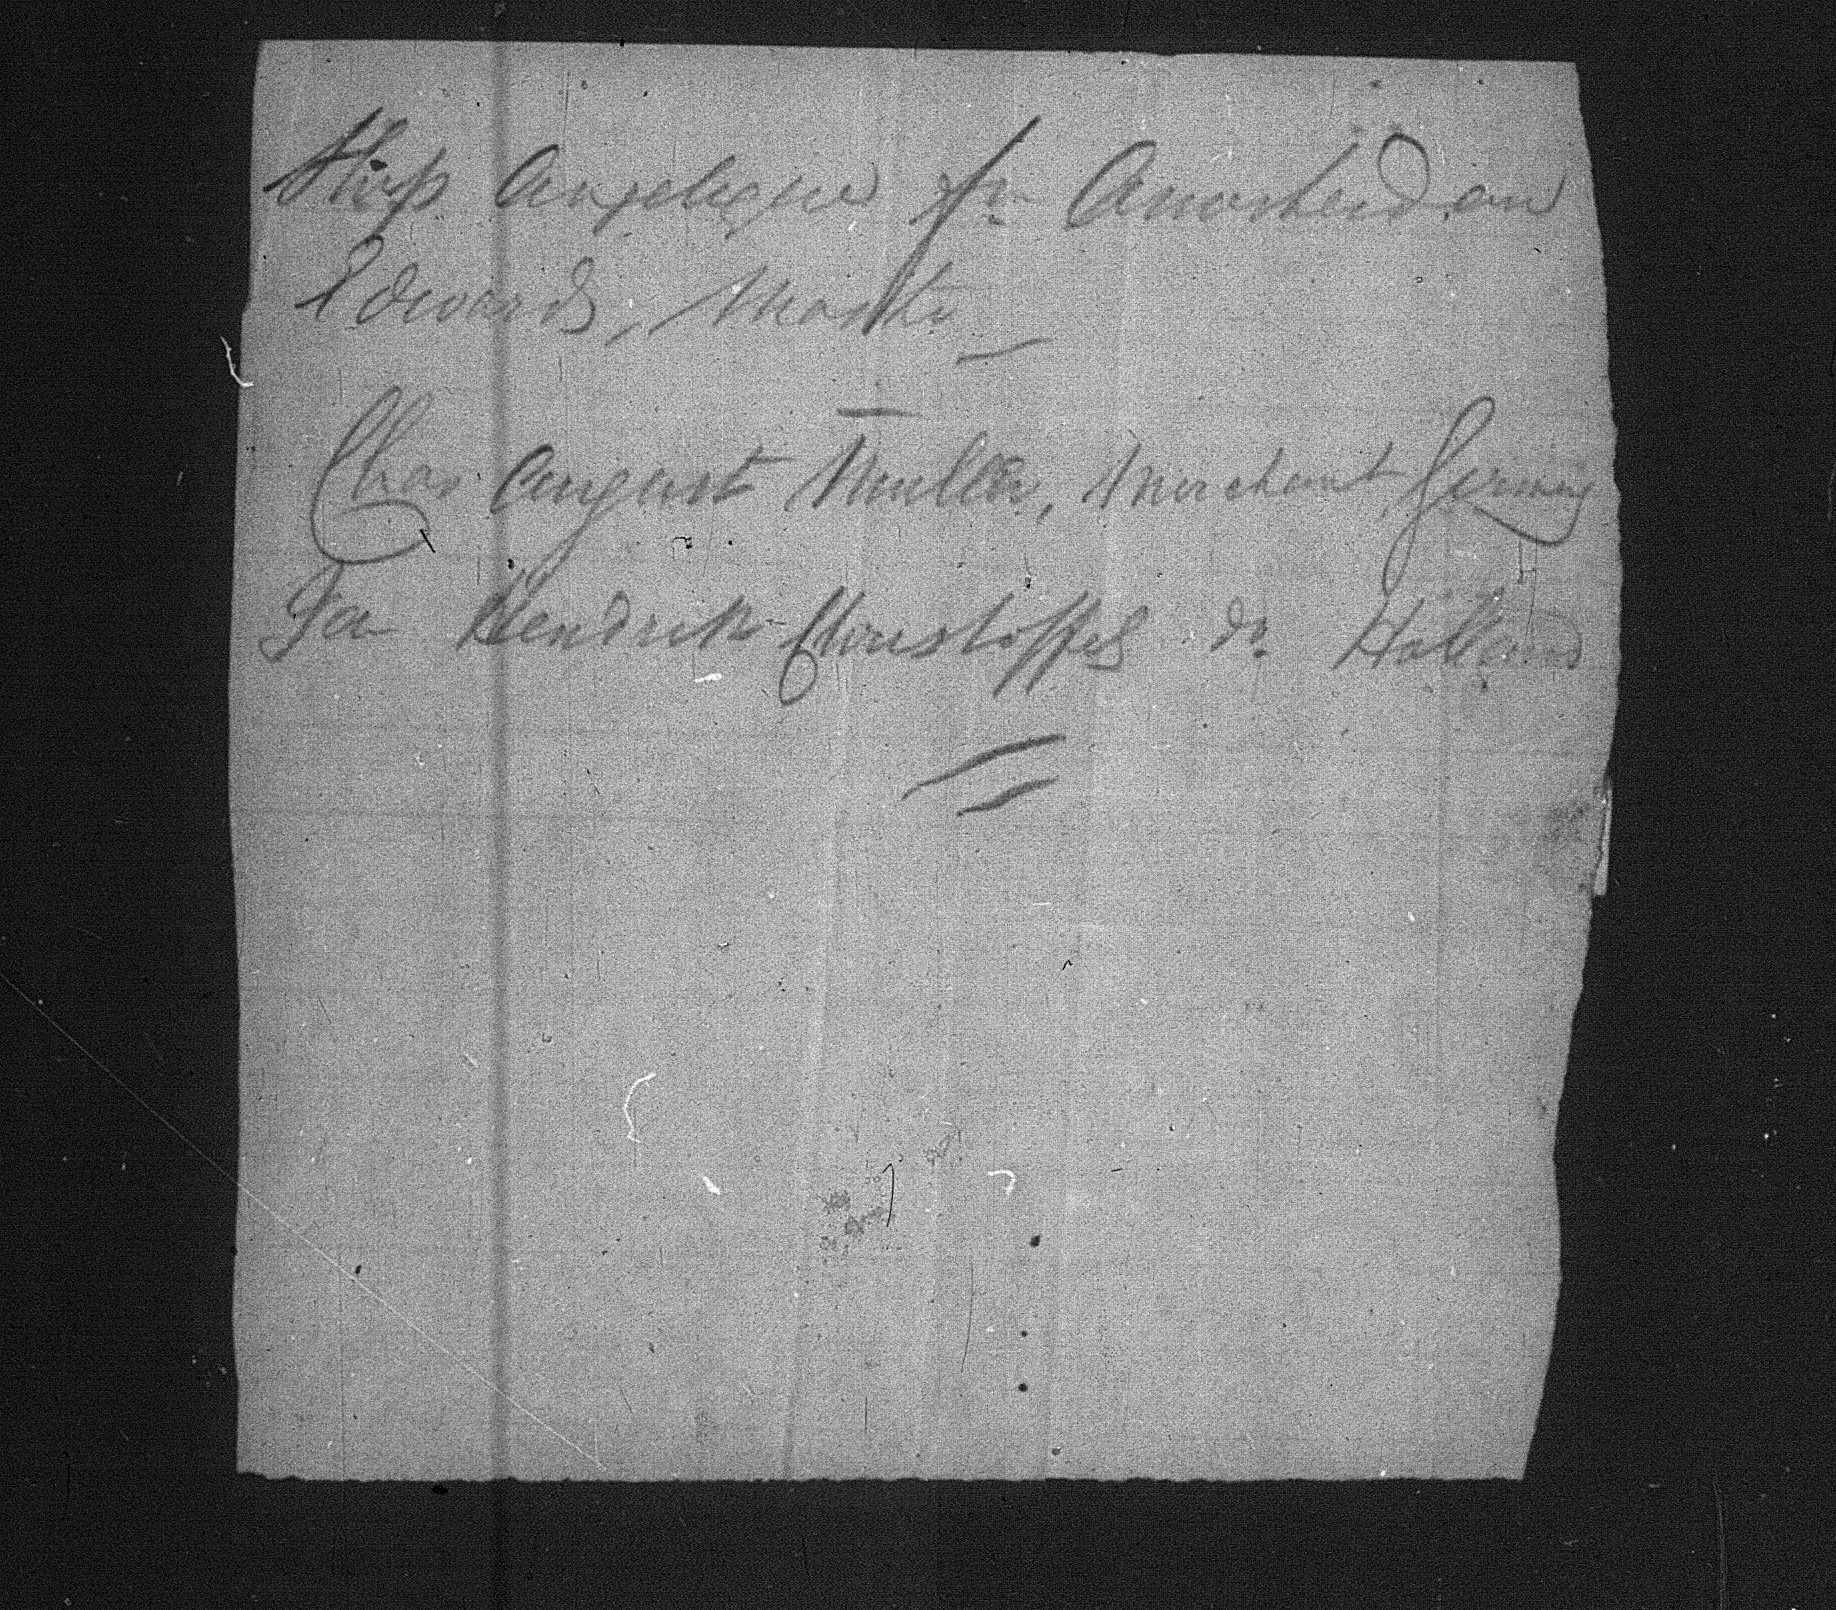 Ship Angelique fm Amsterdam
Edwards, Master
Chas August Muller, Merchant Germany
Jan Hendrik Christoffel do Holland